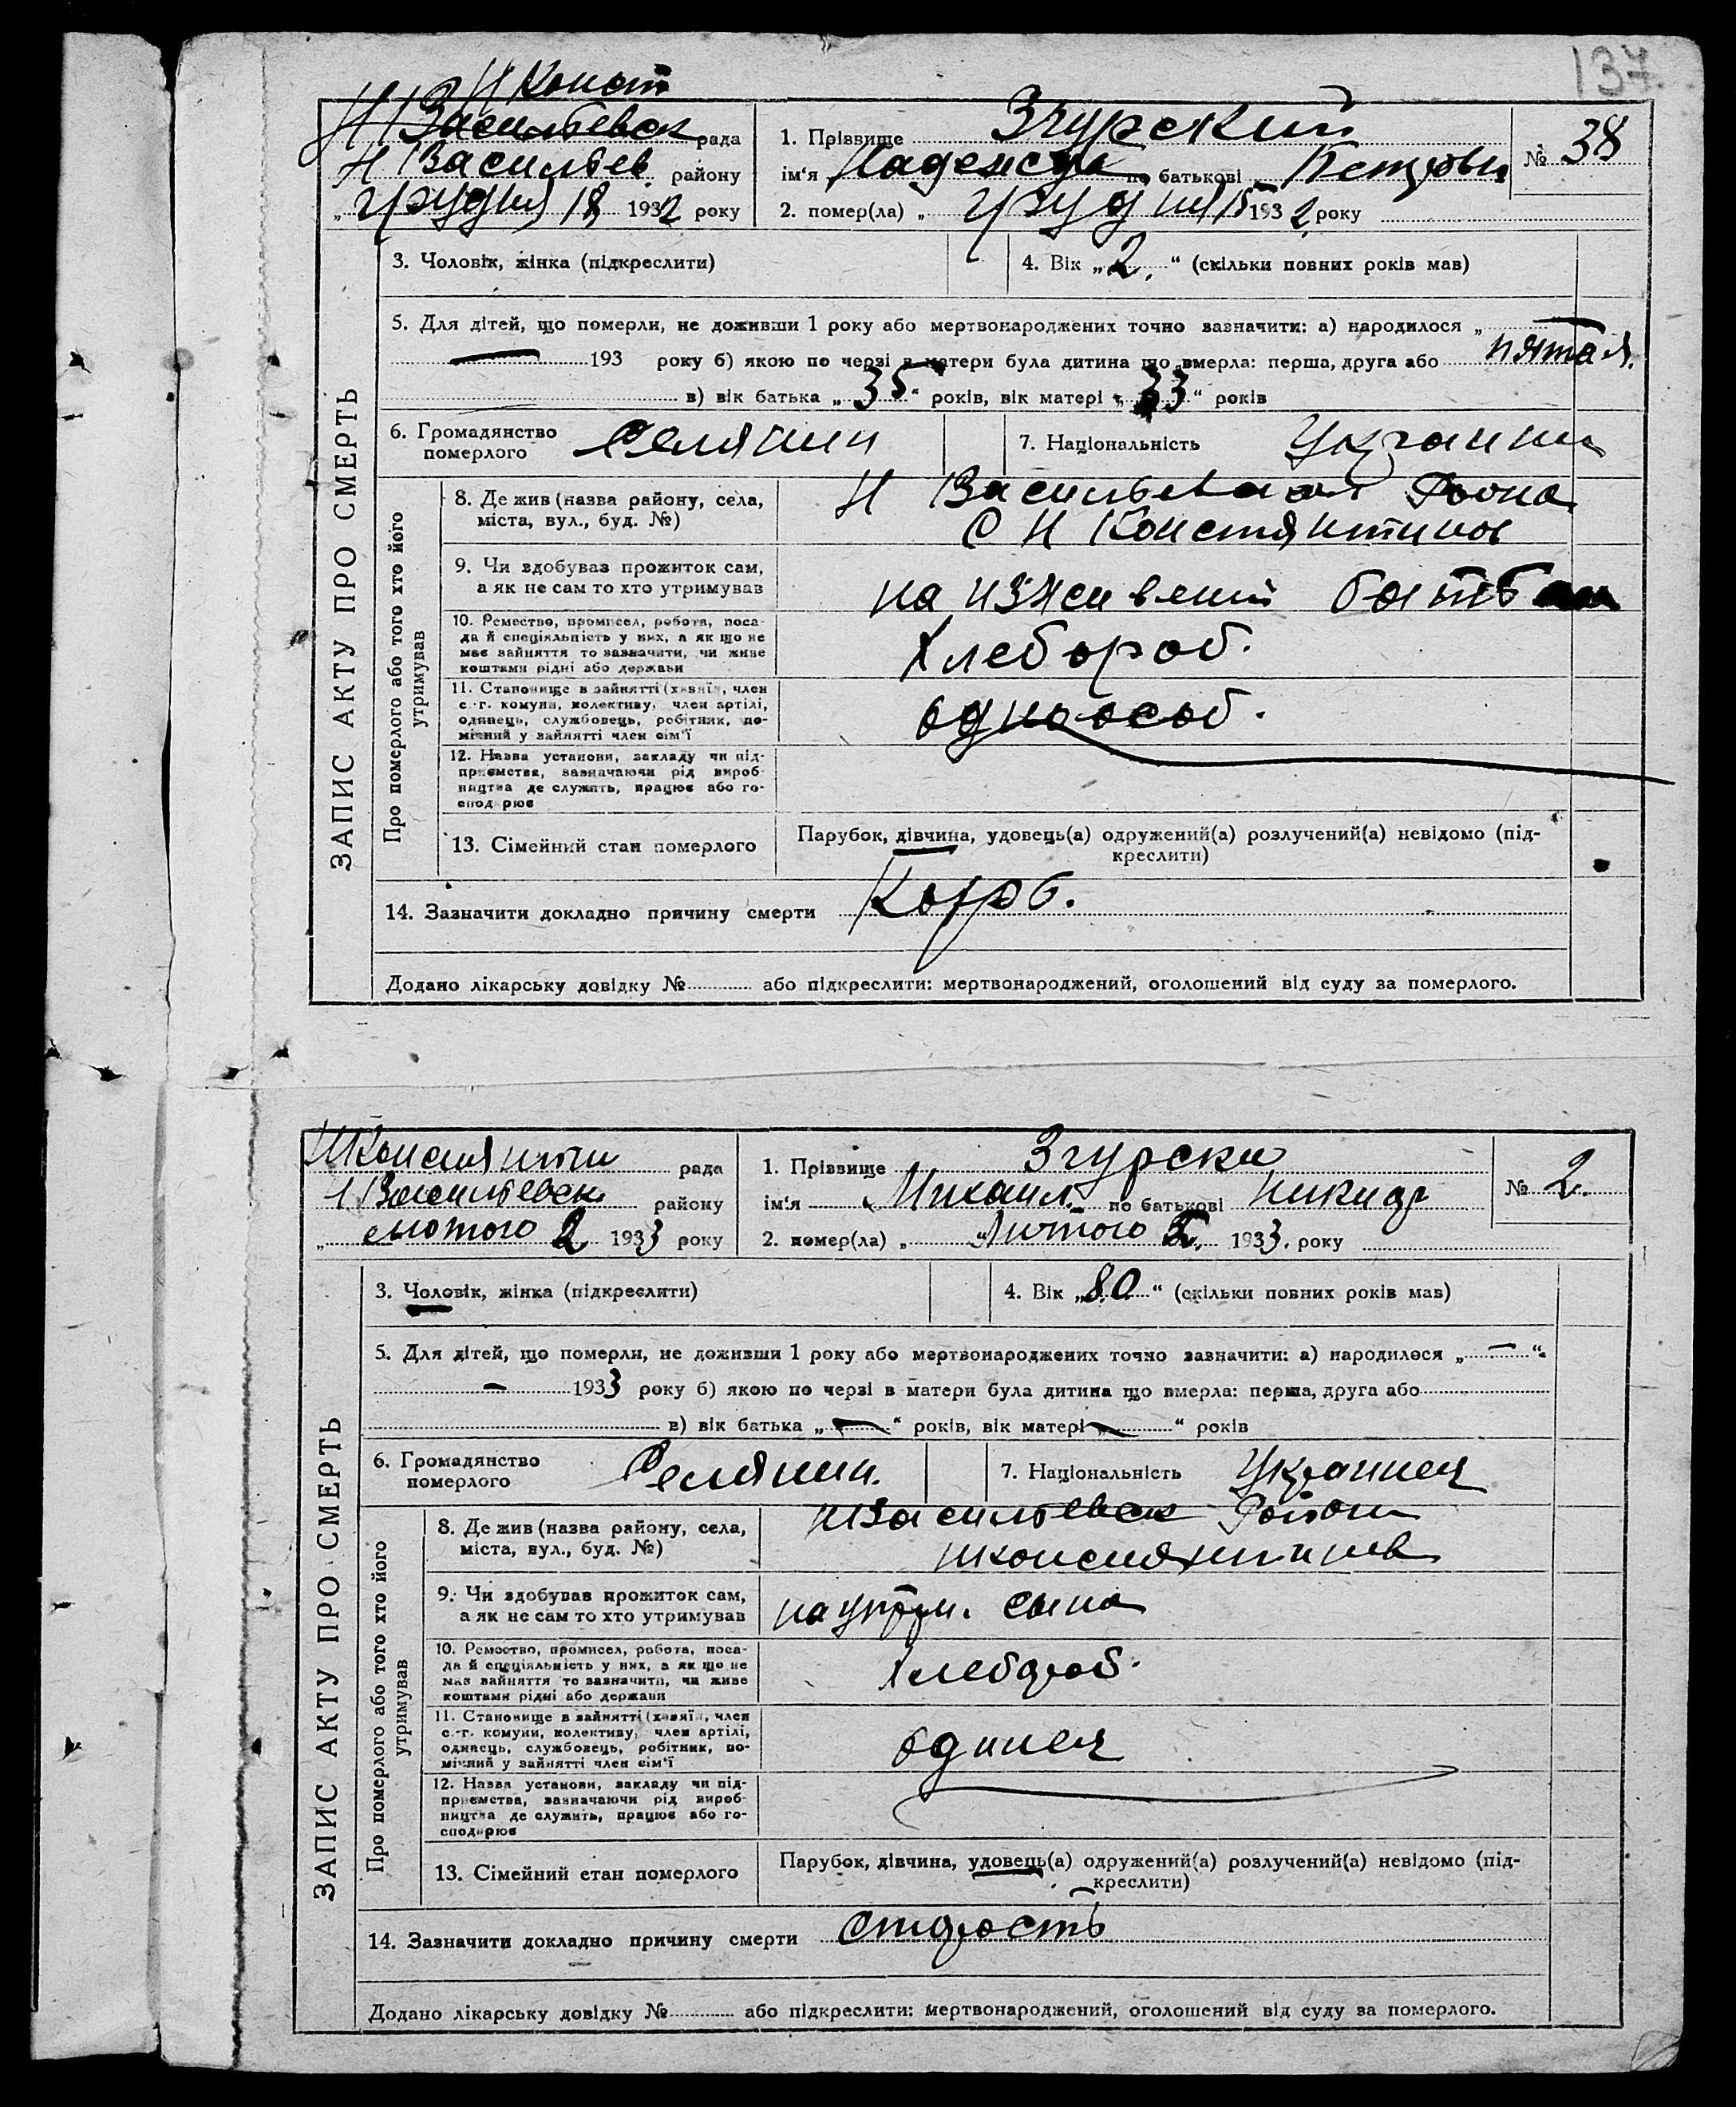 137
Н Конст
Н Васильевск рада
1. Прізвище Згурский
№ 38
Н Васильев. району
ім'я Надежда по батькові Петровн
„ грудня 18 1932 року
2. помер(ла) „ грудня 15 1932 року
3. Чоловік, жінка (підкреслити)
4. Вік „ 2. “ (скільки повних років мав)
5. Для дітей, що померли, не доживши 1 року або мертвонароджених точно зазначити: а) народилося „ “
193 року б) якою по черзі в матери була дитина що вмерла: перша, друга або пятая.
в) вік батька „ 35 “ років, вік матері „ 33 “ років
6. Громадянство померлого Селянин
7. Національність Украин
ЗАПИС АКТУ ПРО СМЕРТЬ
Про померлого або того хто його утримував
8. Де жив (назва району, села,
міста, вул., буд. №)
Н Васильевская
С Н Констянтинов
9. Чи здобував прожиток сам,
а як не сам то хто утримував
на
10. Ремество, промисел, робота, поса-
да й спеціяльність у них, а як що не
має зайняття то зазначити, чи живе
коштами рідні або держави
Хлебороб.
11. Становище в зайнятті (хазяїн, член
с.-г. комуни, колективу, член артілі,
одинець, службовець, робітник, по-
мічний у зайнятті член сім'ї
одноособ.
12. Назва установи, закладу чи під-
приємства, зазначаючи рід вироб-
ництва де служить, працює або го-
сподарює
13. Сімейний стан померлого
Парубок, дівчина, удовець(а) одружений(а) розлучений(а) невідомо (під-
креслити)
14. Зазначити докладно причину смерти
Додано лікарську довідку № або підкреслити: мертвонароджений, оголошений від суду за померлого.
НКонстянтин рада
1. Прізвище Згурски
№ 2.
Н Васильевск району
ім'я Михаил. по батькові Никидр
„ лютого 2 1933 року
2. помер(ла) „ Лютого 2. 1933. року
3. Чоловік, жінка (підкреслити)
4. Вік „ 80 “ (скільки повних років мав)
5. Для дітей, що померли, не доживши 1 року або мертвонароджених точно зазначити: а) народилося „ – “
– 1933 року б) якою по черзі в матери була дитина що вмерла: перша, друга або
в) вік батька „ – “ років, вік матері „ – “ років
6. Громадянство померлого Селянин.
7. Національність Украинец
ЗАПИС АКТУ ПРО СМЕРТЬ
Про померлого або того хто його утримував
8. Де жив (назва району, села,
міста, вул., буд. №)
НВасильевск Район
Нконстянтинов
9. Чи здобував прожиток сам,
а як не сам то хто утримував
на утрим. сына
10. Ремество, промисел, робота, поса-
да й спеціяльність у них, а як що не
має зайняття то зазначити, чи живе
коштами рідні або держави
Хлебороб.
11. Становище в зайнятті (хазяїн, член
с.-г. комуни, колективу, член артілі,
одинець, службовець, робітник, по-
мічний у зайнятті член сім'ї
одинец
12. Назва установи, закладу чи під-
приємства, зазначаючи рід вироб-
ництва де служить, працює або го-
сподарює
13. Сімейний стан померлого
Парубок, дівчина, удовець(а) одружений(а) розлучений(а) невідомо (під-
креслити)
14. Зазначити докладно причину смерти старость
Додано лікарську довідку № або підкреслити: мертвонароджений, оголошений від суду за померлого.